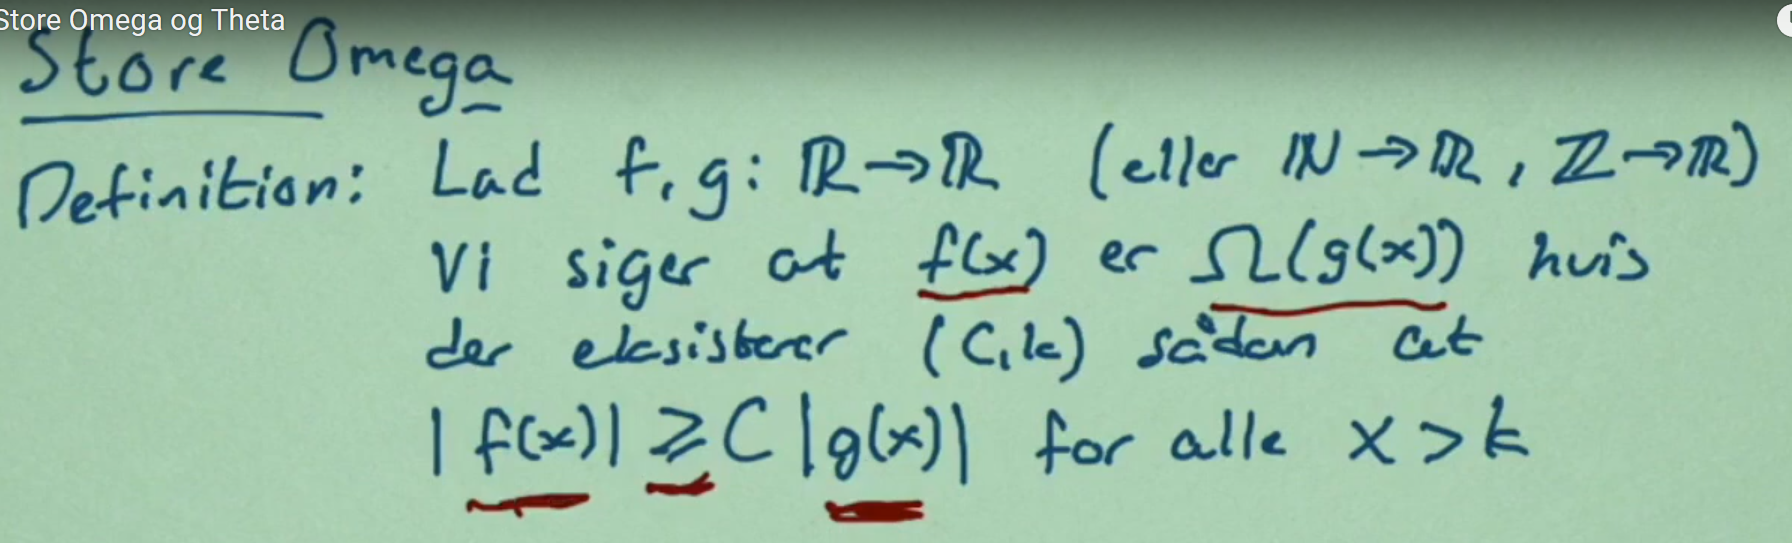 Store Omega og Theta
Store Omega
Definition: Lad f, g: ℝ→ℝ (eller ℕ→ℝ, ℤ→ℝ)
Vi siger at f(x) er Ω(g(x)) hvis
der eksisterer (C,k) sådan at
|f(x)| ≥ C|g(x)| for alle x>k